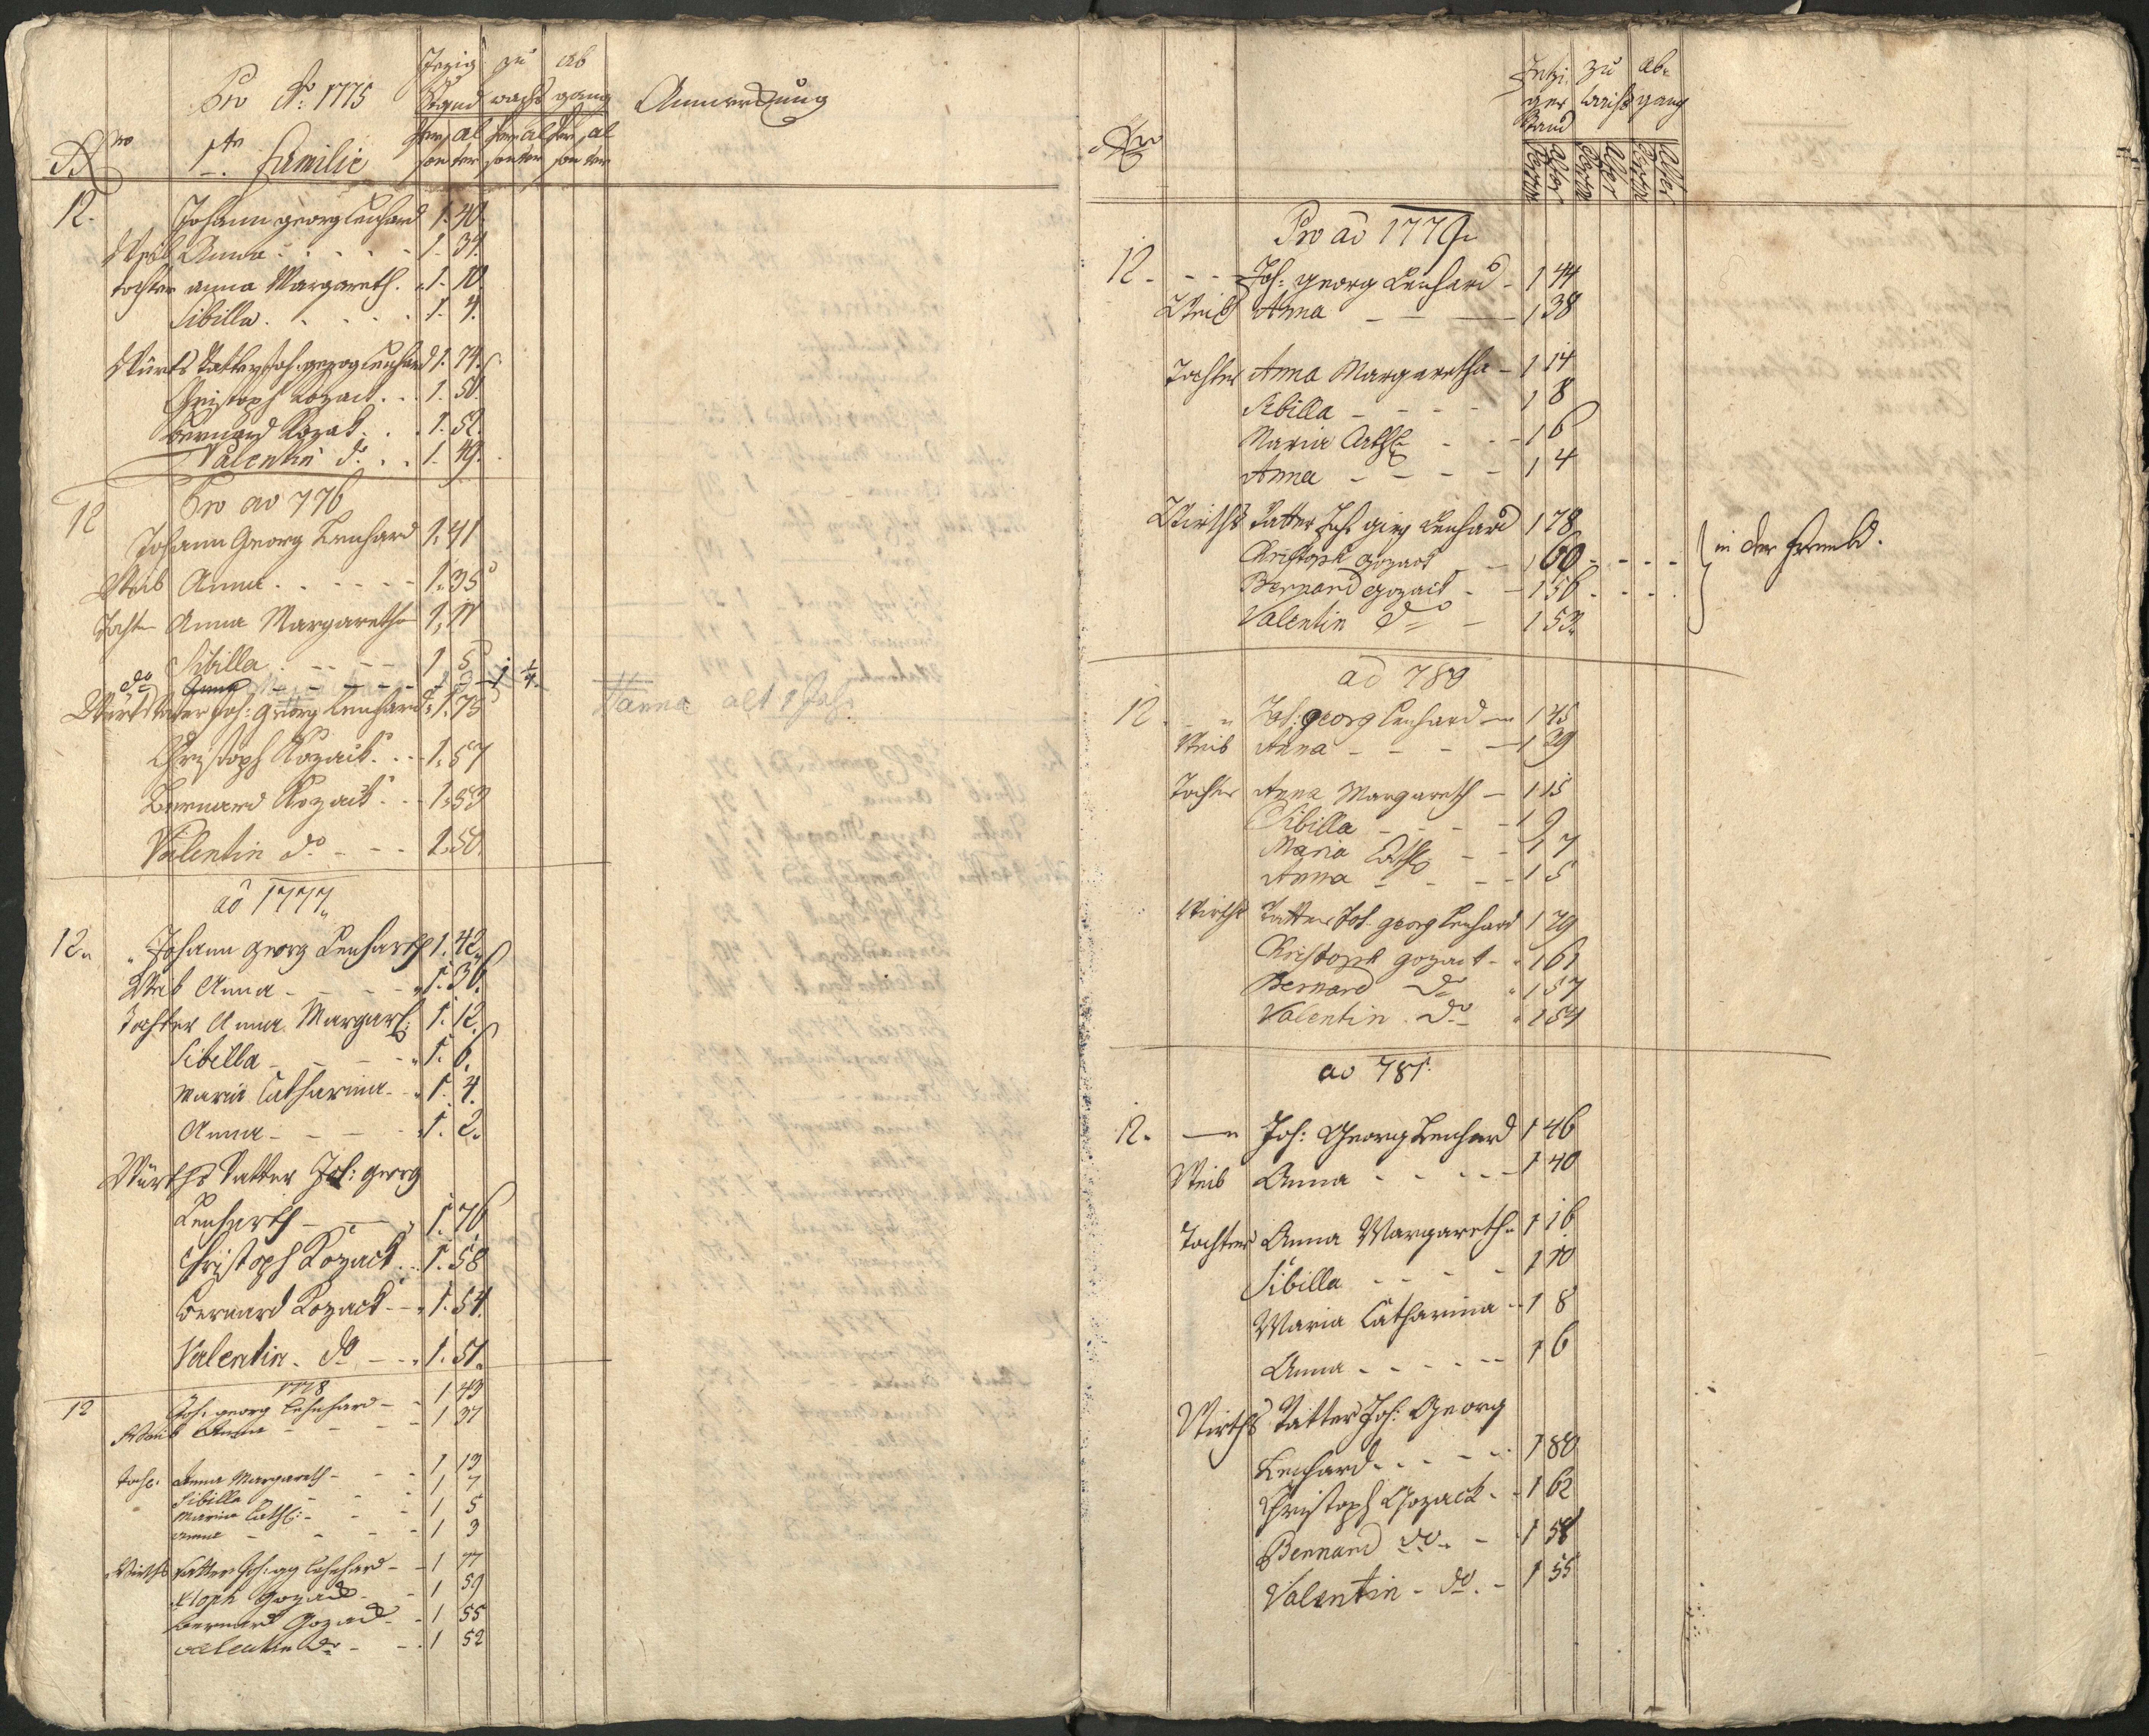 Pro Ao: 1775
Jezig zu ab
Stand wachs gang
Anmerckung
Per al Per al Per al
son ter son ter son ter
Nro
1te Familie
12. Johann georg Lenhard 1. 40.
Weib Anna . . . . 1. 34.
tochter anna Margareth. 1. 10.
Sibilla . . . . 1. 4.
Würts Vatter Joh. georg Lenhard 1. 74.
Christoph Kozack . . 1. 56.
Bernard Kozak . . 1. 52.
Valentin do. . . 1. 49.
Pro ao 776
12 Johann Georg Lenhard 1. 41
Weib Anna . . . . . 1. 35
Tochter Anna Margaretha 1. 11
Sibilla . . . . 1 5
do Anna
Würts Vater Joh: georg Lenhard 1. 75
Hanna alt 1 Jahr
Christoph Kozack . . . 1. 57
Bernard Kozack . . . 1. 53
Valentin do - - - 1. 50.
ao 1777
12 Johann georg Lenharth 1. 42
Weib Anna - - - - 1. 36.
Tochter Anna Margareth: 1. 12.
Sibella - - - - 1. 6.
Maria Catharina - - 1. 4.
Anna - - - - 1. 2.
Würths Vatter Joh: georg
Lenharth - - - 1. 76
Christoph Kozack . . . 1. 58
Bernard Kozack - - - 1. 54.
Valentin. do - - . 1. 51.
1778
12 Joh: georg Lehnhard - - 1 43
Weib Anna - - - - 1 37
Toch: Anna Margareth - - - 1 13
Sibilla - - - 1 7
Maria Cath: - - - 1 5
Anna - - - - 1 3
Wirths Vatter Joh: gg Lehnhard - - 1 77
Xtoph Gozack - - 1 59
Bernard Gozack - - 1 55
Valentin do - - . 1 52
Nro
Jetzi zu ab=
ger wachs gang
Stand
Person Alter Person Alter Person Alter
Pro ao 1779
12 - - - Joh: georg Lenhard - 1 44
Weib Anna - - - 1 38
Tochter Anna Margaretha - 1 14
Sibilla - - - - 1 8
Maria Cath: - - - 1 6
Anna - - - - 1 4
Wirths Vatter Joh georg Lenhard 1 78
Christoph Gozack - - 1 60 - - - -
in der Fremd.
Bernard Gozack - - 1 56 . . . .
Valentin do - 1 53.
ao 780
12 - " Joh: georg Lenhard - 1 45
Weib Anna - - - - 1 39
Tochter Anna Margareth - 1 15
Sibilla - - - - 1 9
Maria Cath: - - 1 7
Anna - - - - 1 5
Wirths Vatter Joh. georg Lenhard 1 79
Christoph gozack - . 1 61
Bernard do " 1 57
Valentin. do " 1 54
ao 781.
12. - " Joh: Georg Lenhard 1 46
Weib Anna - - . . - 1 40
Tochter Anna Margareth 1 16
Sibilla - - - - 1 10
Maria Catharina - - 1 8
Anna - - - - - - 1 6
Wirths Vatter Joh: Georg
Lenhard. . . - - - 1 80
Christoph Gozack - . 1 62
Bernard do. - . 1 58
Valentin - do. - 1 55